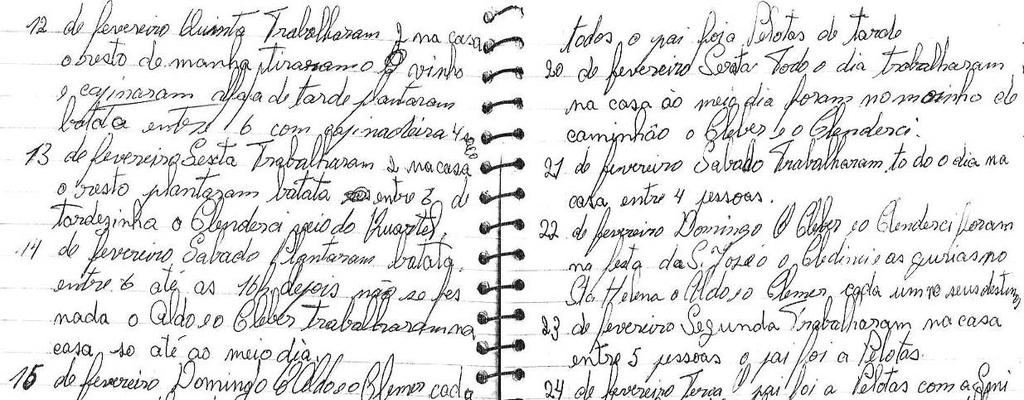 12 de fevereiro Quinta Trabalharam 2 na casa
o resto de manha tiraram o vinho
e capinaram de tarde plantaram
batata entre 6 com capinadeira 4
13 de fevereiro Sexta Trabalharam 2 na casa
o resto plantaram batata entre 6 de
tardezinha o Clenderci veio do Quartel.
14 de fevereiro Sabado Plantaram batata
entre 6 até as 16h depois não se fes
nada o Aldo e o Cleber trabalharam na
casa so até ao meio dia.
15 de fevereiro Domingo O Aldo e o Clemer cada
todos o pai foi a Pelotas de tarde
20 de fevereiro Sexta Todo o dia trabalharam
na casa ào meio dia foram no moinho de
caminhão o Cleber e o Clenderci.
21 de fevereiro Sabado Trabalharam todo o dia na
casa entre 4 pessoas.
22 de fevereiro Domingo O Cleber e o Clenderci foram
na festa da S. José o Cledinei e as gurias no
Sta Helena o Aldo e o Clemer cada um no seus destinos
23 de fevereiro Segunda Trabalharam na casa
entre 5 pessoas o pai foi a Pelotas.
24 de fevereiro Terça O pai foi a Pelotas com a